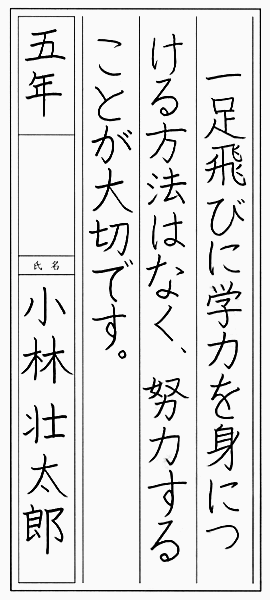 一足飛びに学力を身につ
ける方法はなく、努力する
ことが大切です。
五年
氏名
小林壮太郎